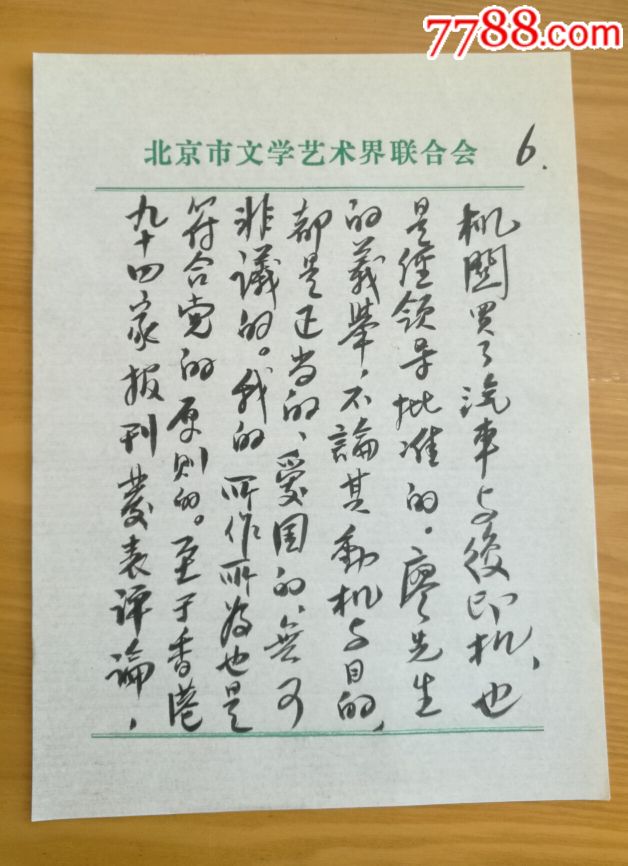 7788.com
北京市文学艺术界联合会
6.
机関買了汽車与後印机、也
是经领导批准的。廖先生
的義舉，不論其動机与目的，
都是正当的、爱国的、無可
非議的。我的所作所为也是
符合党的原则的。至于香港
九十四家报刊發表評論，